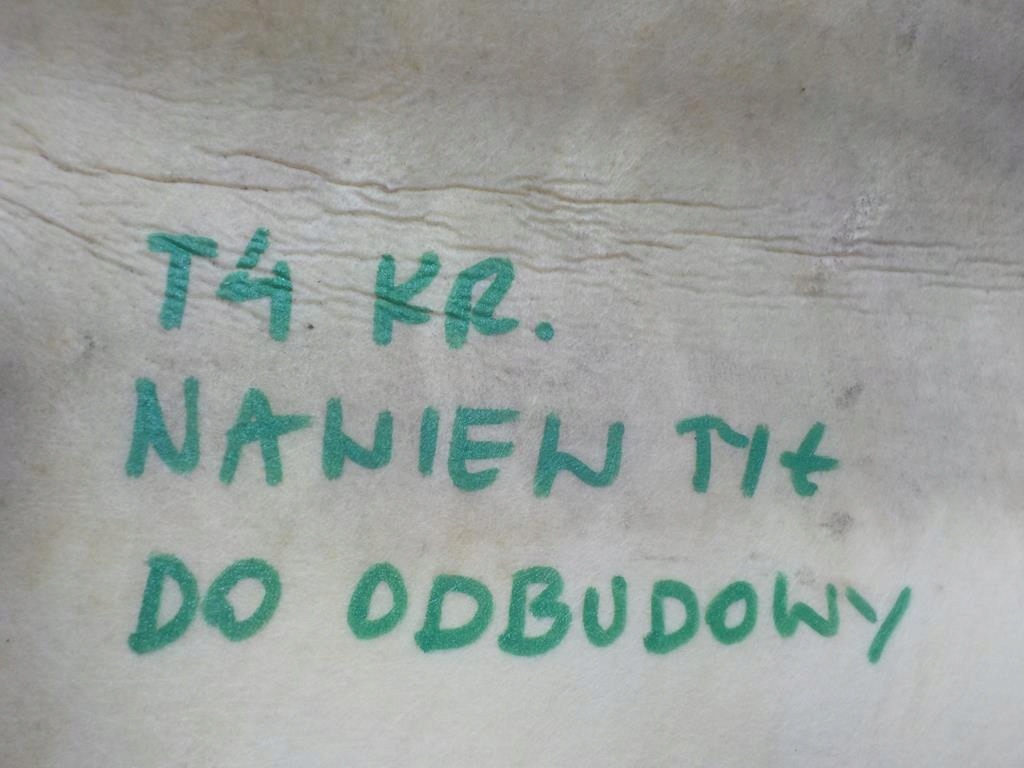 T4 KR.
NAWIEW TYŁ
DO ODBUDOWY